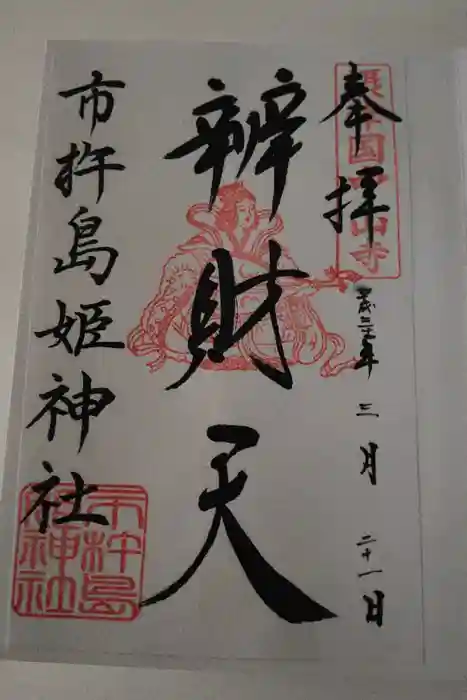 奉拝
三月二十一日
辨財天
市杵島姫神社
市杵島姫神社